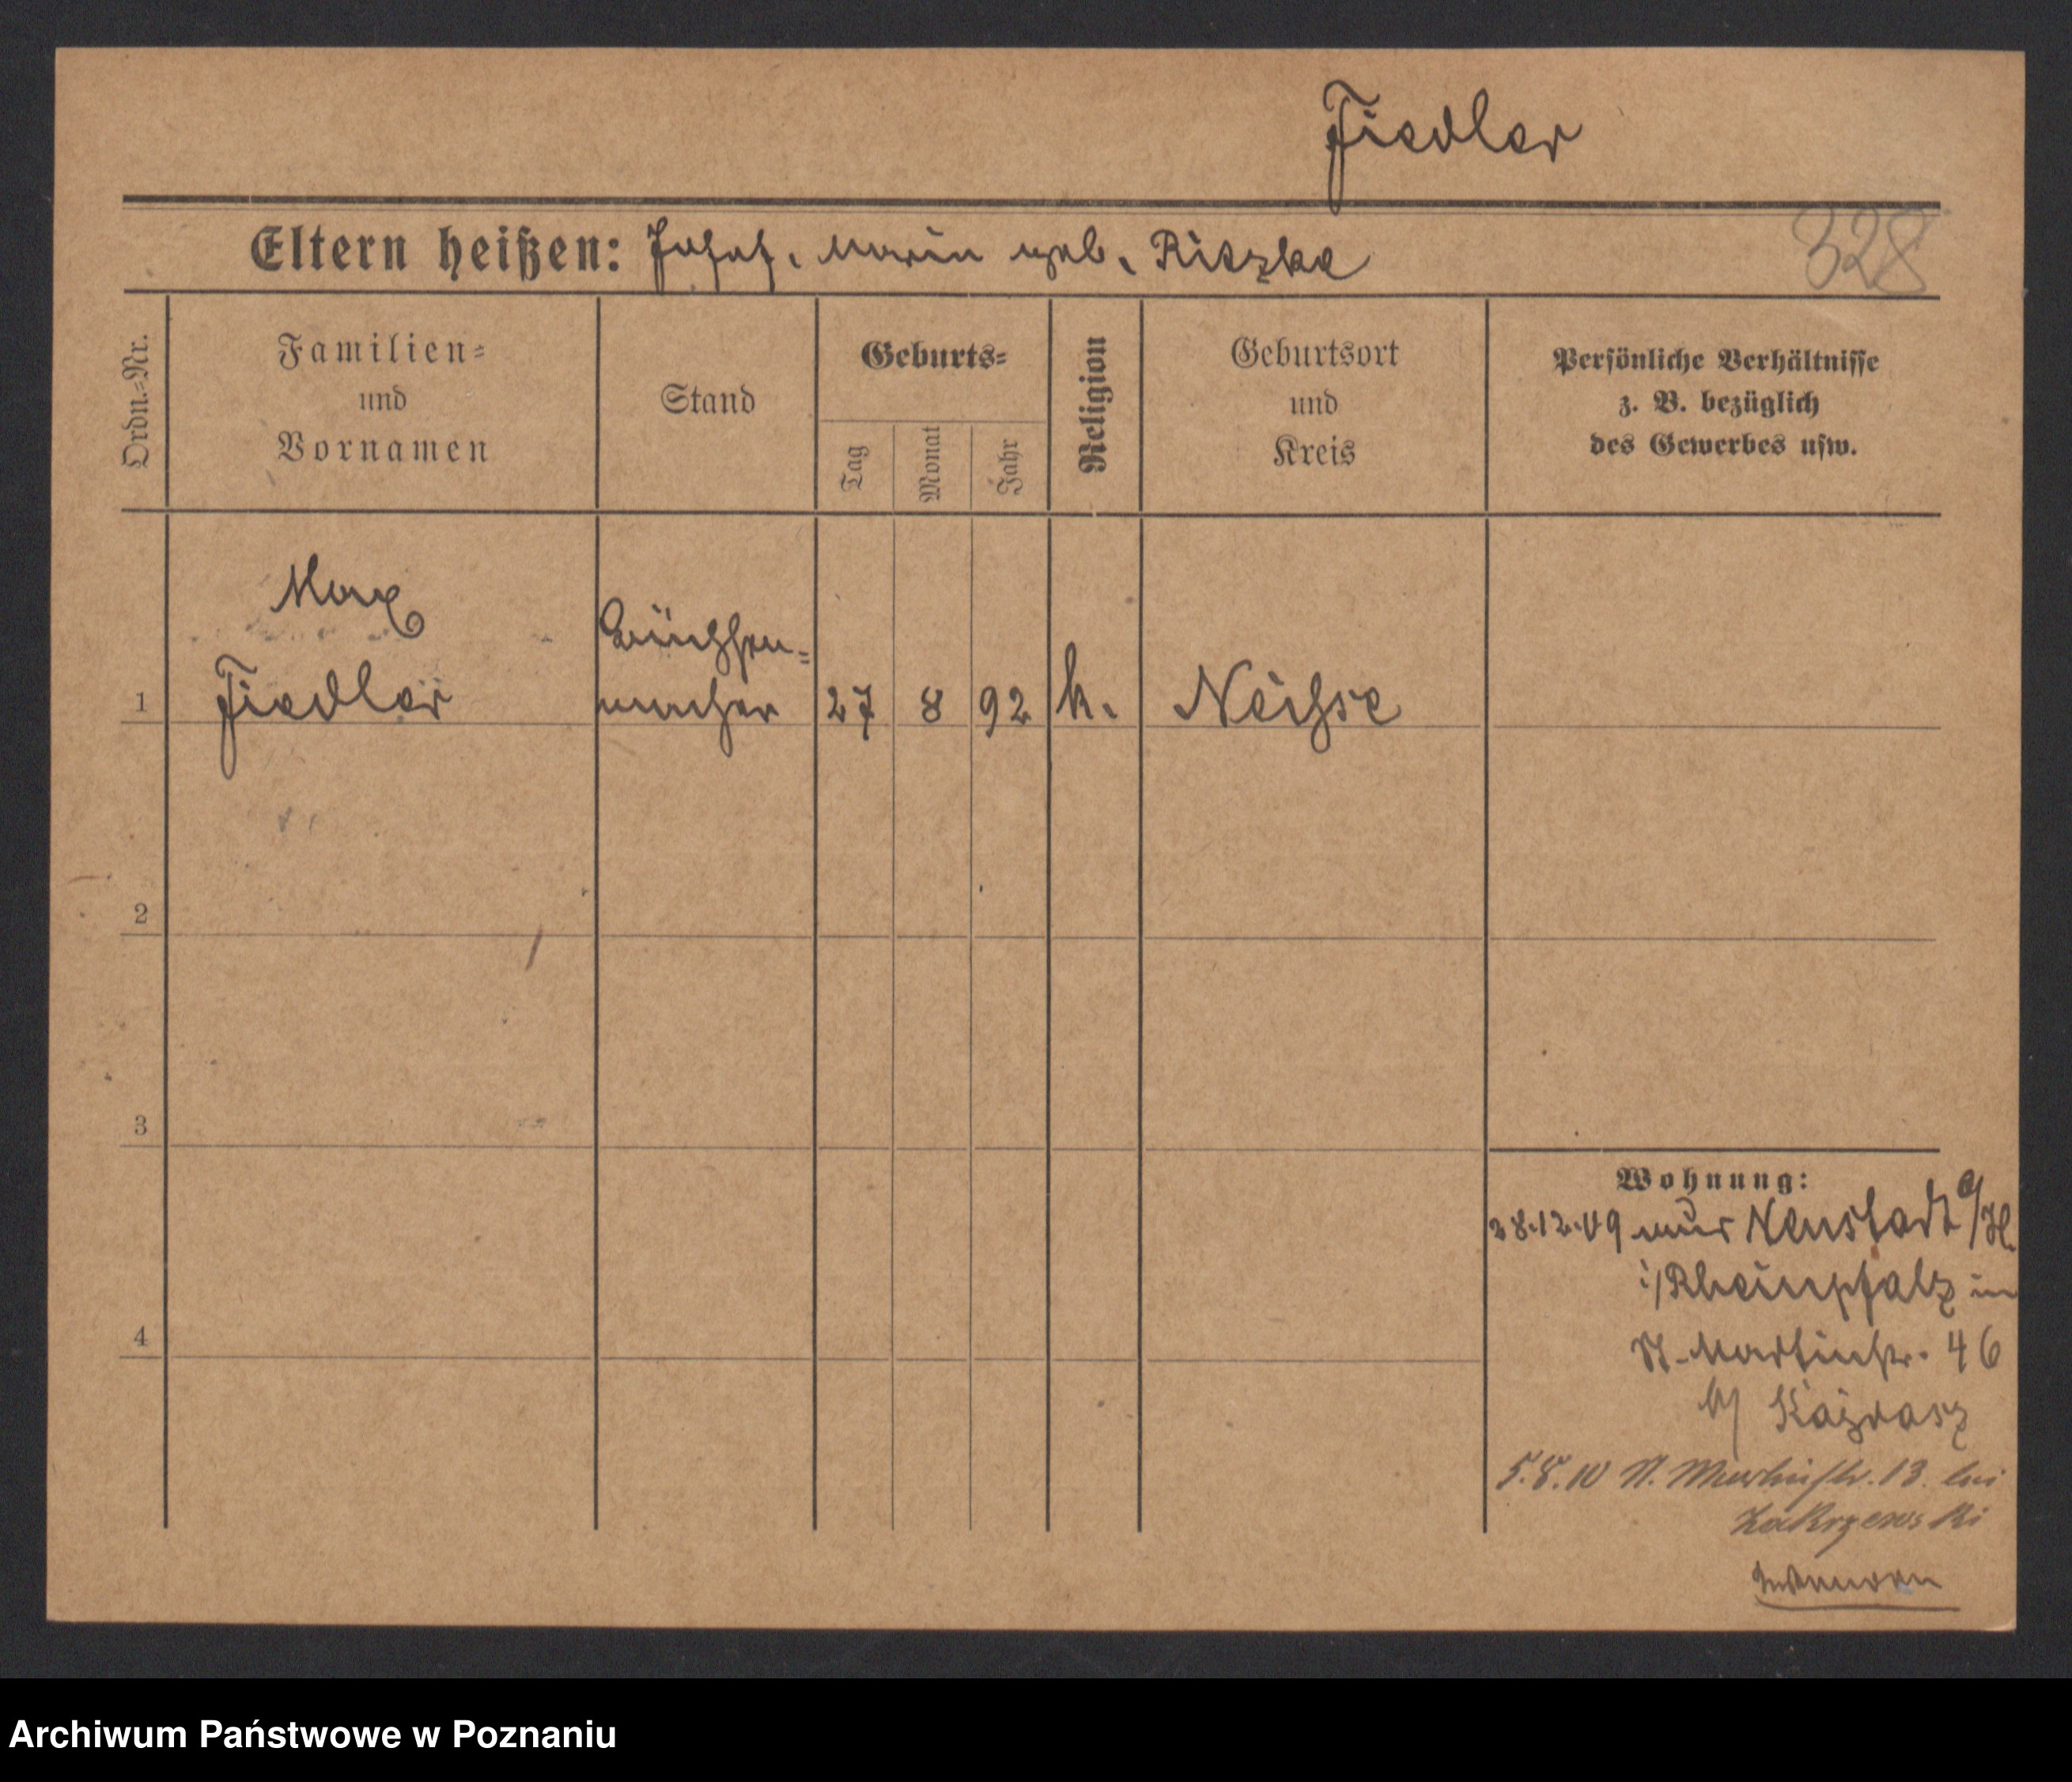 Fiedler
328
Eltern heißen: Josef, Maria geb. Ritzka
Ordn.=Nr.
Familien=
und
Vornamen
Stand
Geburts=
Tag
Monat
Jahr
Religion
Geburtsort
und
Kreis
Persönliche Verhältnisse
z. B. bezüglich
des Gewerbes usw.
Max
Fiedler
Büchsen=
macher
1
27 8 92 k. Neisse
2
3
4
Wohnung:
28.12.09 aus Neustadt a/H.
i/Rheinpfalz in
St. Martinstr. 46
b/
5.8.10 St. Martinstr. 13. bei
Zakrzewski
Archiwum Państwowe w Poznaniu